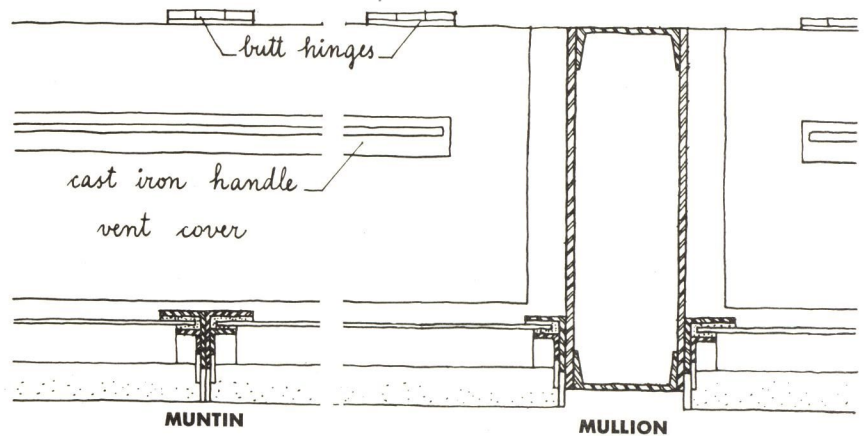 butt hinges
cast iron handle
vent cover
MUNTIN
MULLION